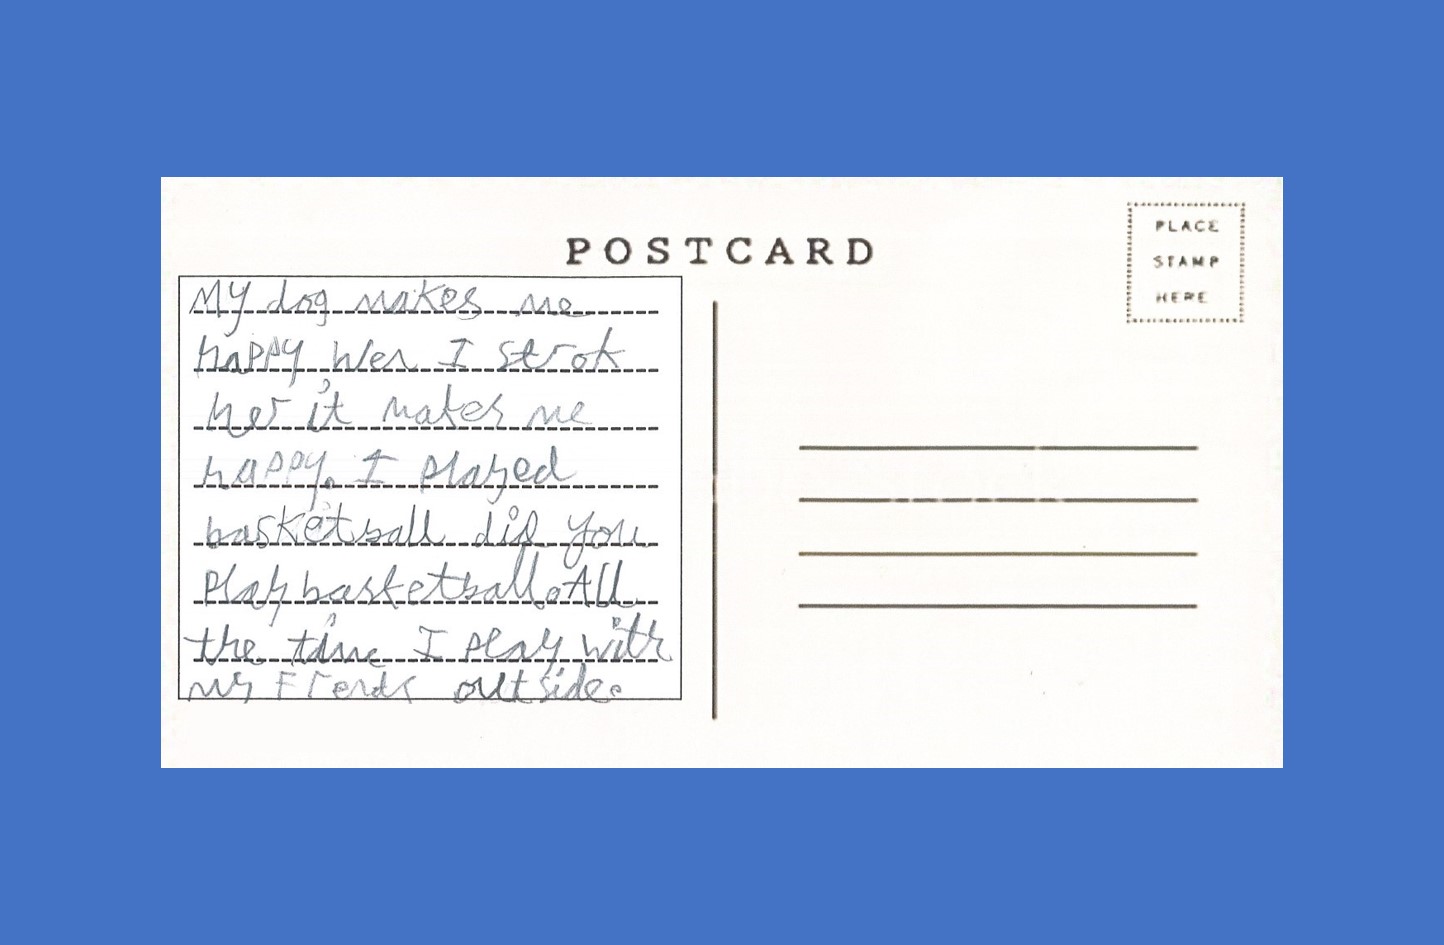 POSTCARD
PLACE
STAMP
HERE
My dog makes me
happy wen I strok
her it makes me
happy. I played
basketball did you
play basketball. All
the time I play with
my Frends outside.